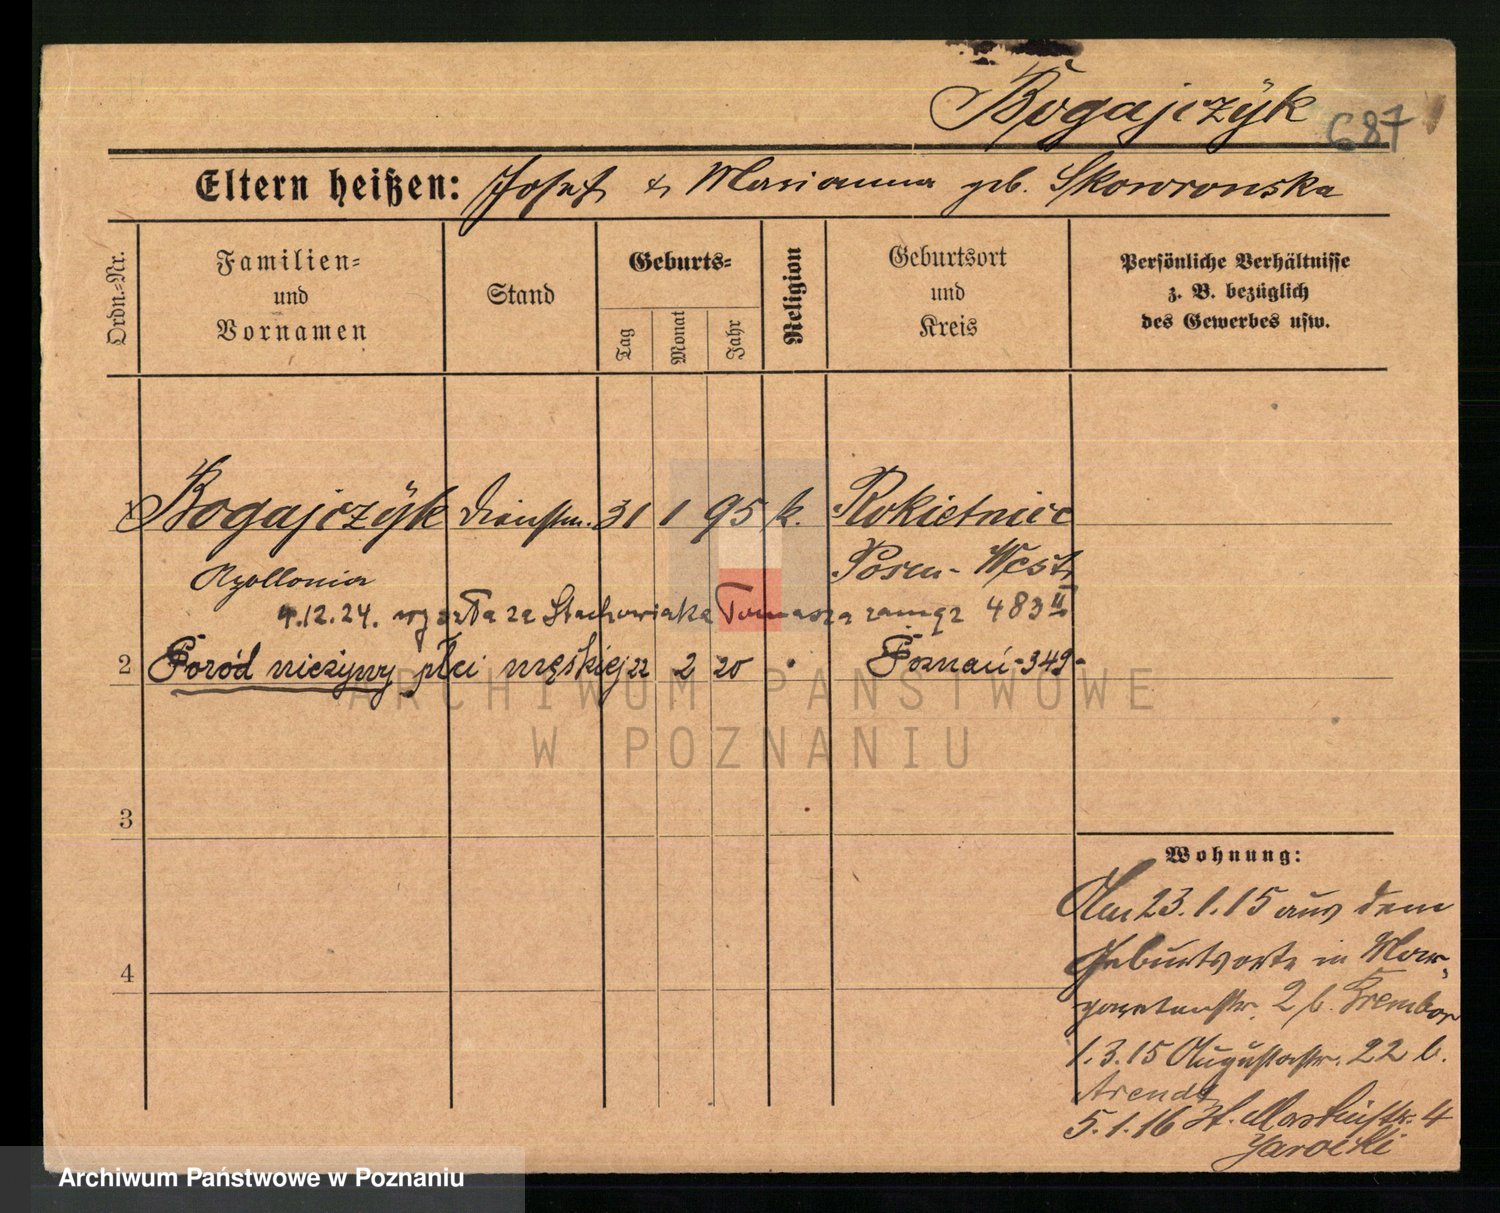 Bogajczÿk 687
Eltern heißen: Josef & Marianna geb. Skowronska
Ordn.-Nr.
Familien-
und
Vornamen
Stand
Geburts-
Tag
Monat
Jahr
Religion
Geburtsort
und
Kreis
Persönliche Verhältnisse
z. B. bezüglich
des Gewerbes usw.
1 Bogajczÿk Dienstm. 31 1 95 k. Rokietnice
Apollonia Posen-West
4.12.24. wyszła za Stachowiaka Tomasza zamąz 483 II
2 Poród nieżywy płci męskiej 22 2 20 Poznań-349-
3
4
Wohnung:
Am 23.1.15 aus dem
Geburtsorte in Mar-
garetenstr. 2 b.
1.3.15 Augustastr. 22 b.
Arendt
5.1.16 St. Martinstr. 4
Jarocki
ARCHIWUM PAŃSTWOWE
W POZNANIU
Archiwum Państwowe w Poznaniu